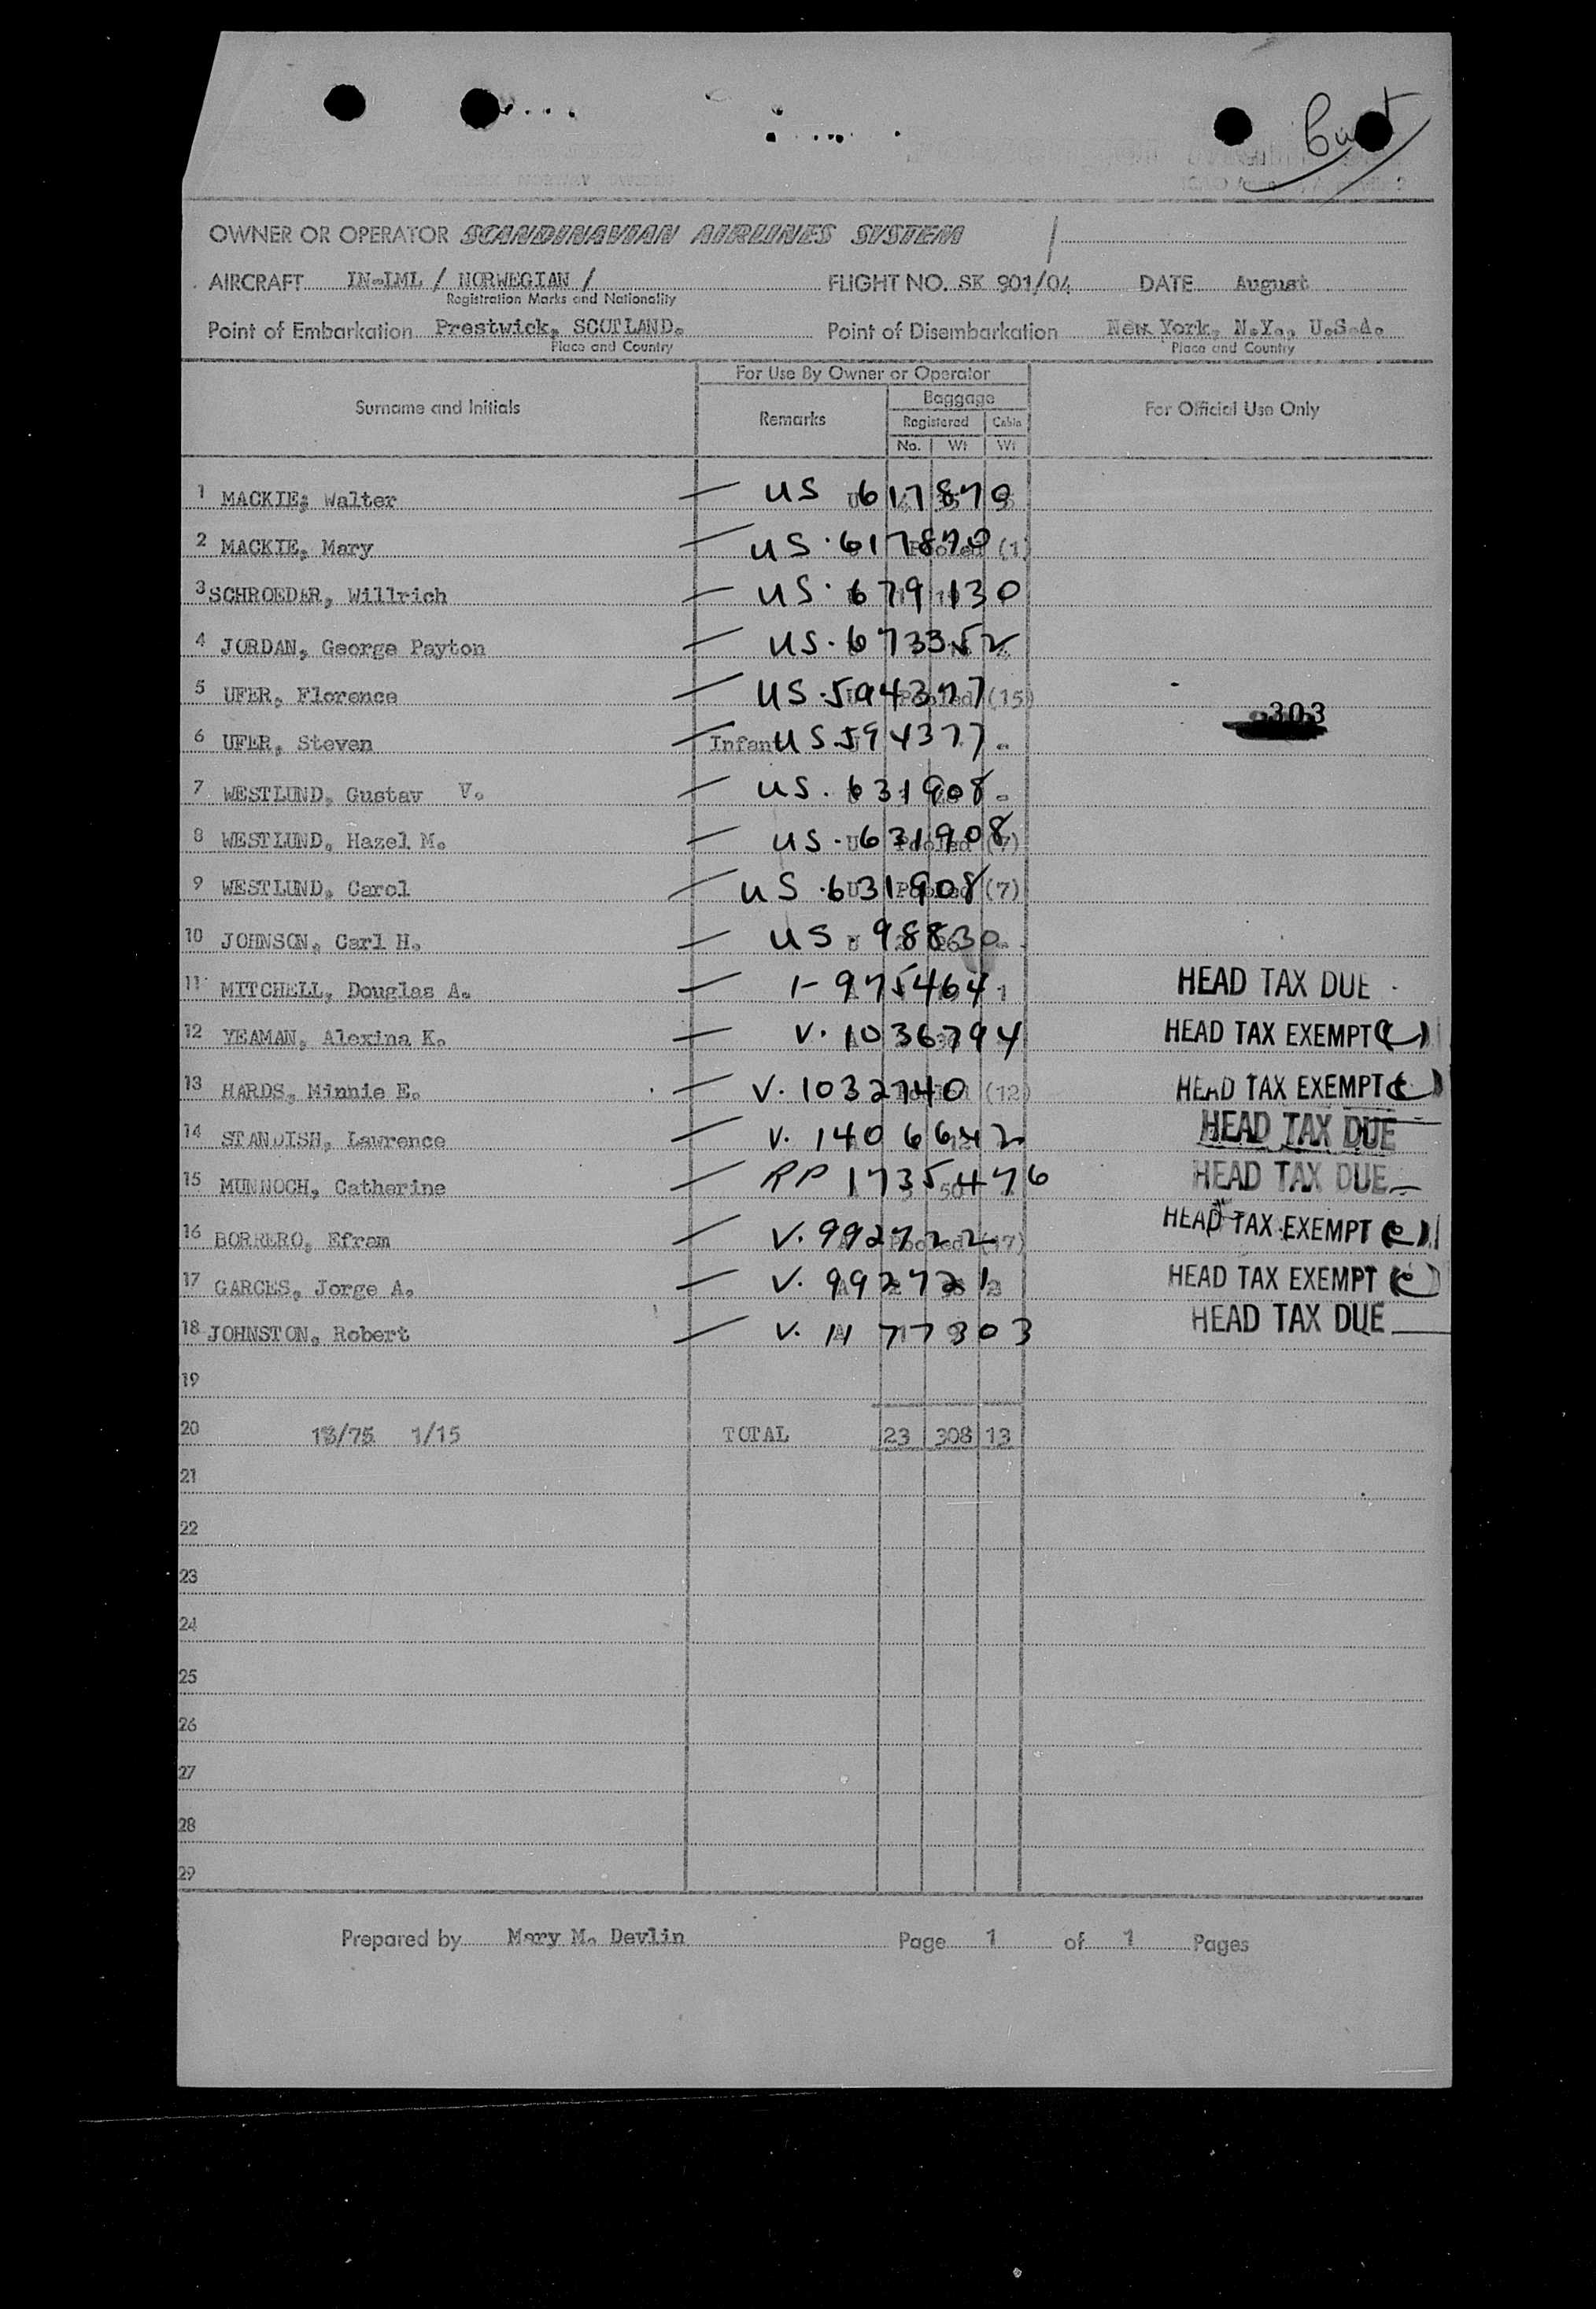 OWNER OR OPERATOR SCANDINAVIAN AIRLINES SYSTEM
AIRCRAFT LN-LML / NORWEGIAN / FLIGHT NO. SK 901/04 DATE August
Registration Marks and Nationality
Point of Embarkation Prestwick, SCOTLAND. Point of Disembarkation New York, N.Y., U.S.A.
Place and Country Place and Country
For Use By Owner or Operator
Surname and Initials Remarks Baggage For Official Use Only
Registered Cabin
No. Wt Wt
1 MACKIE, Walter US 617870
2 MACKIE, Mary US.617870 (1)
3 SCHROEDER, Willrich US.679130
4 JORDAN, George Payton US.673352
5 UFER, Florence US.594377 Pooled (15)
303
6 UFER, Steven Infant US 594377
7 WESTLUND, Gustav V. US.631908
8 WESTLUND, Hazel M. US.631908 Pooled (7)
9 WESTLUND, Carol US.631908 Pooled (7)
10 JOHNSON, Carl H. US 98830
11 MITCHELL, Douglas A. I-975464 1 HEAD TAX DUE
12 YEAMAN, Alexina K. V. 1036794 HEAD TAX EXEMPT
13 HARDS, Minnie E. V. 1032740 (12) HEAD TAX EXEMPT
14 STANDISH, Lawrence V. 1406642 HEAD TAX DUE
15 MUNNOCH, Catherine RP 1735476 HEAD TAX DUE
16 BORRERO, Efram V. 992722 Pooled (17) HEAD TAX EXEMPT
17 GARCES, Jorge A. V. 992721 HEAD TAX EXEMPT
18 JOHNSTON, Robert V. 1177303 HEAD TAX DUE
19
20 18/75 1/15 TOTAL 23 308 13
21
22
23
24
25
26
27
28
29
Prepared by Mary M. Devlin Page 1 of 1 Pages